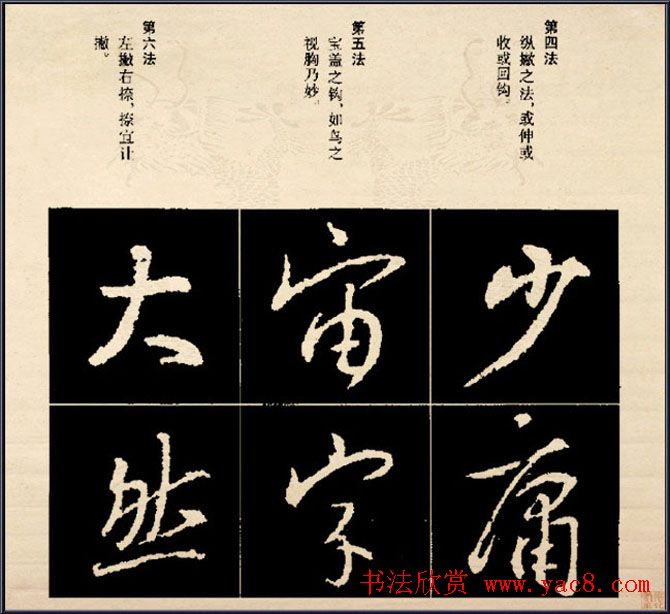 第四法
纵撇之法，或伸或
收或回钩。
第五法
宝盖之钩，如鸟之
视胸乃妙。
第六法
左撇右捺，捺宜让
撇。
少
庸
宙
字
大
然
书法欣赏 www.yac8.com